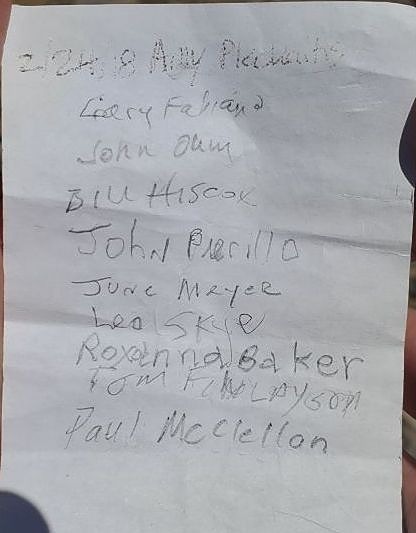 2/24/18 Amy
Gary Fabiano
John Ohm
Bill Hiscox
John Pierillo
June Meyer
Leo Skye
Roxanna Baker
Tom Finlayson
Paul McClellan